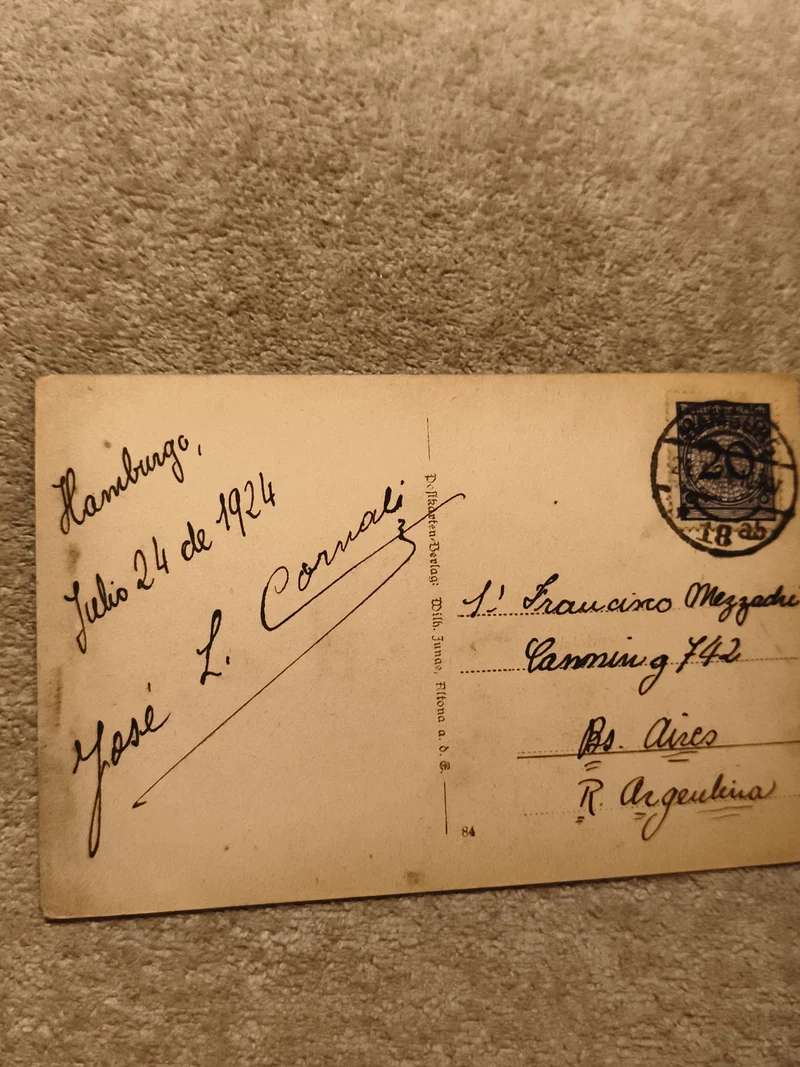 Hamburgo,
Julio 24 de 1924
José L. Cornali
Postkarten-Verlag: Wilh. Junge, Altona a. d. E.
84
20
18 ab
Sr Francisco Mezzadri
Canning 742
Bs. Aires
R. Argentina